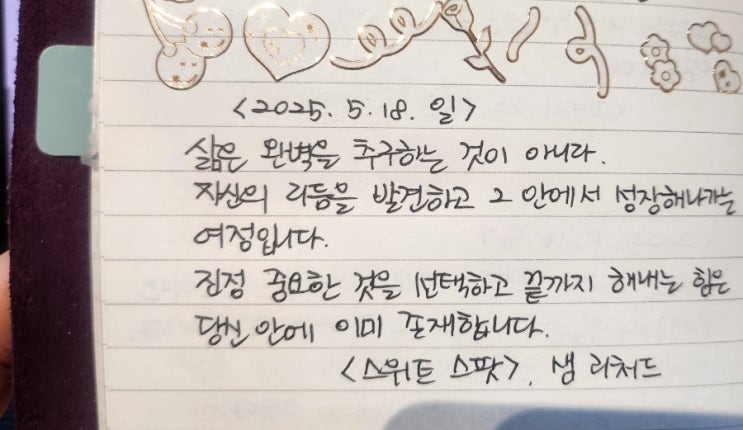 <2025. 5. 18. 일>
삶은 완벽을 추구하는 것이 아니다.
자신의 리듬을 발견하고 그 안에서 성장해나가는
여정입니다.
진정 중요한 것을 선택하고 끝까지 해내는 힘은
당신 안에 이미 존재합니다.
<스위트 스팟>. 샘 리처드